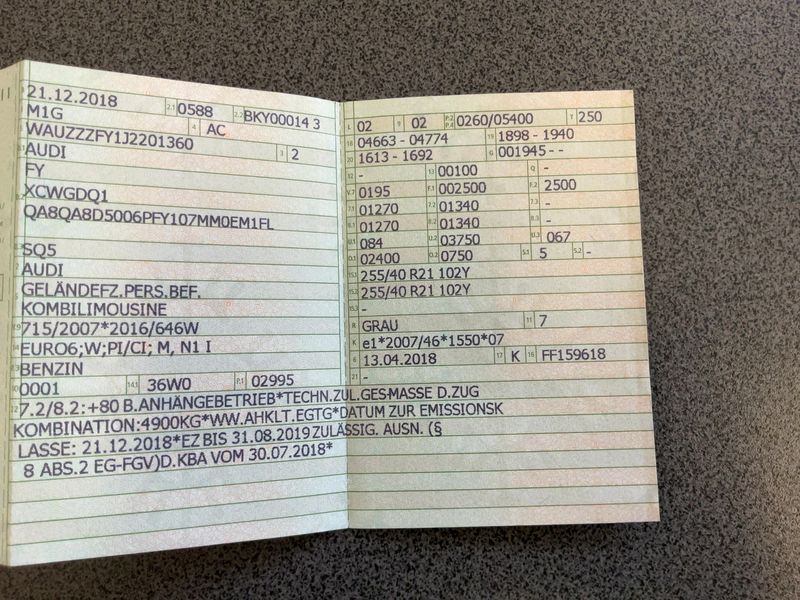 21.12.2018 2.1 0588 2.2 BKY00014 3
M1G 4 AC
WAUZZZFY1J2201360
AUDI 3 2
FY
XCWGDQ1
QA8QA8D5006PFY107MM0EM1FL
SQ5
AUDI
GELÄNDEFZ.PERS.BEF.
KOMBILIMOUSINE
715/2007*2016/646W
EURO6;W;PI/CI; M, N1 I
BENZIN
0001 14.1 36W0 P.1 02995
L 02 9 02 P.2 P.4 0260/05400 T 250
18 04663 - 04774 19 1898 - 1940
20 1613 - 1692 G 001945 - -
12 - 13 00100 Q -
V.7 0195 F.1 002500 F.2 2500
7.1 01270 7.2 01340 7.3 -
8.1 01270 8.2 01340 8.3 -
U.1 084 U.2 03750 U.3 067
O.1 02400 O.2 0750 S.1 5 S.2 -
15.1 255/40 R21 102Y
15.2 255/40 R21 102Y
15.3 -
R GRAU 11 7
K e1*2007/46*1550*07
6 13.04.2018 17 K 16 FF159618
21 -
7.2/8.2:+80 B.ANHÄNGEBETRIEB*TECHN.ZUL.GES-MASSE D.ZUG
KOMBINATION:4900KG*WW.AHKLT.EGTG*DATUM ZUR EMISSIONSK
LASSE: 21.12.2018*EZ BIS 31.08.2019 ZULÄSSIG. AUSN. (§
8 ABS.2 EG-FGV)D.KBA VOM 30.07.2018*